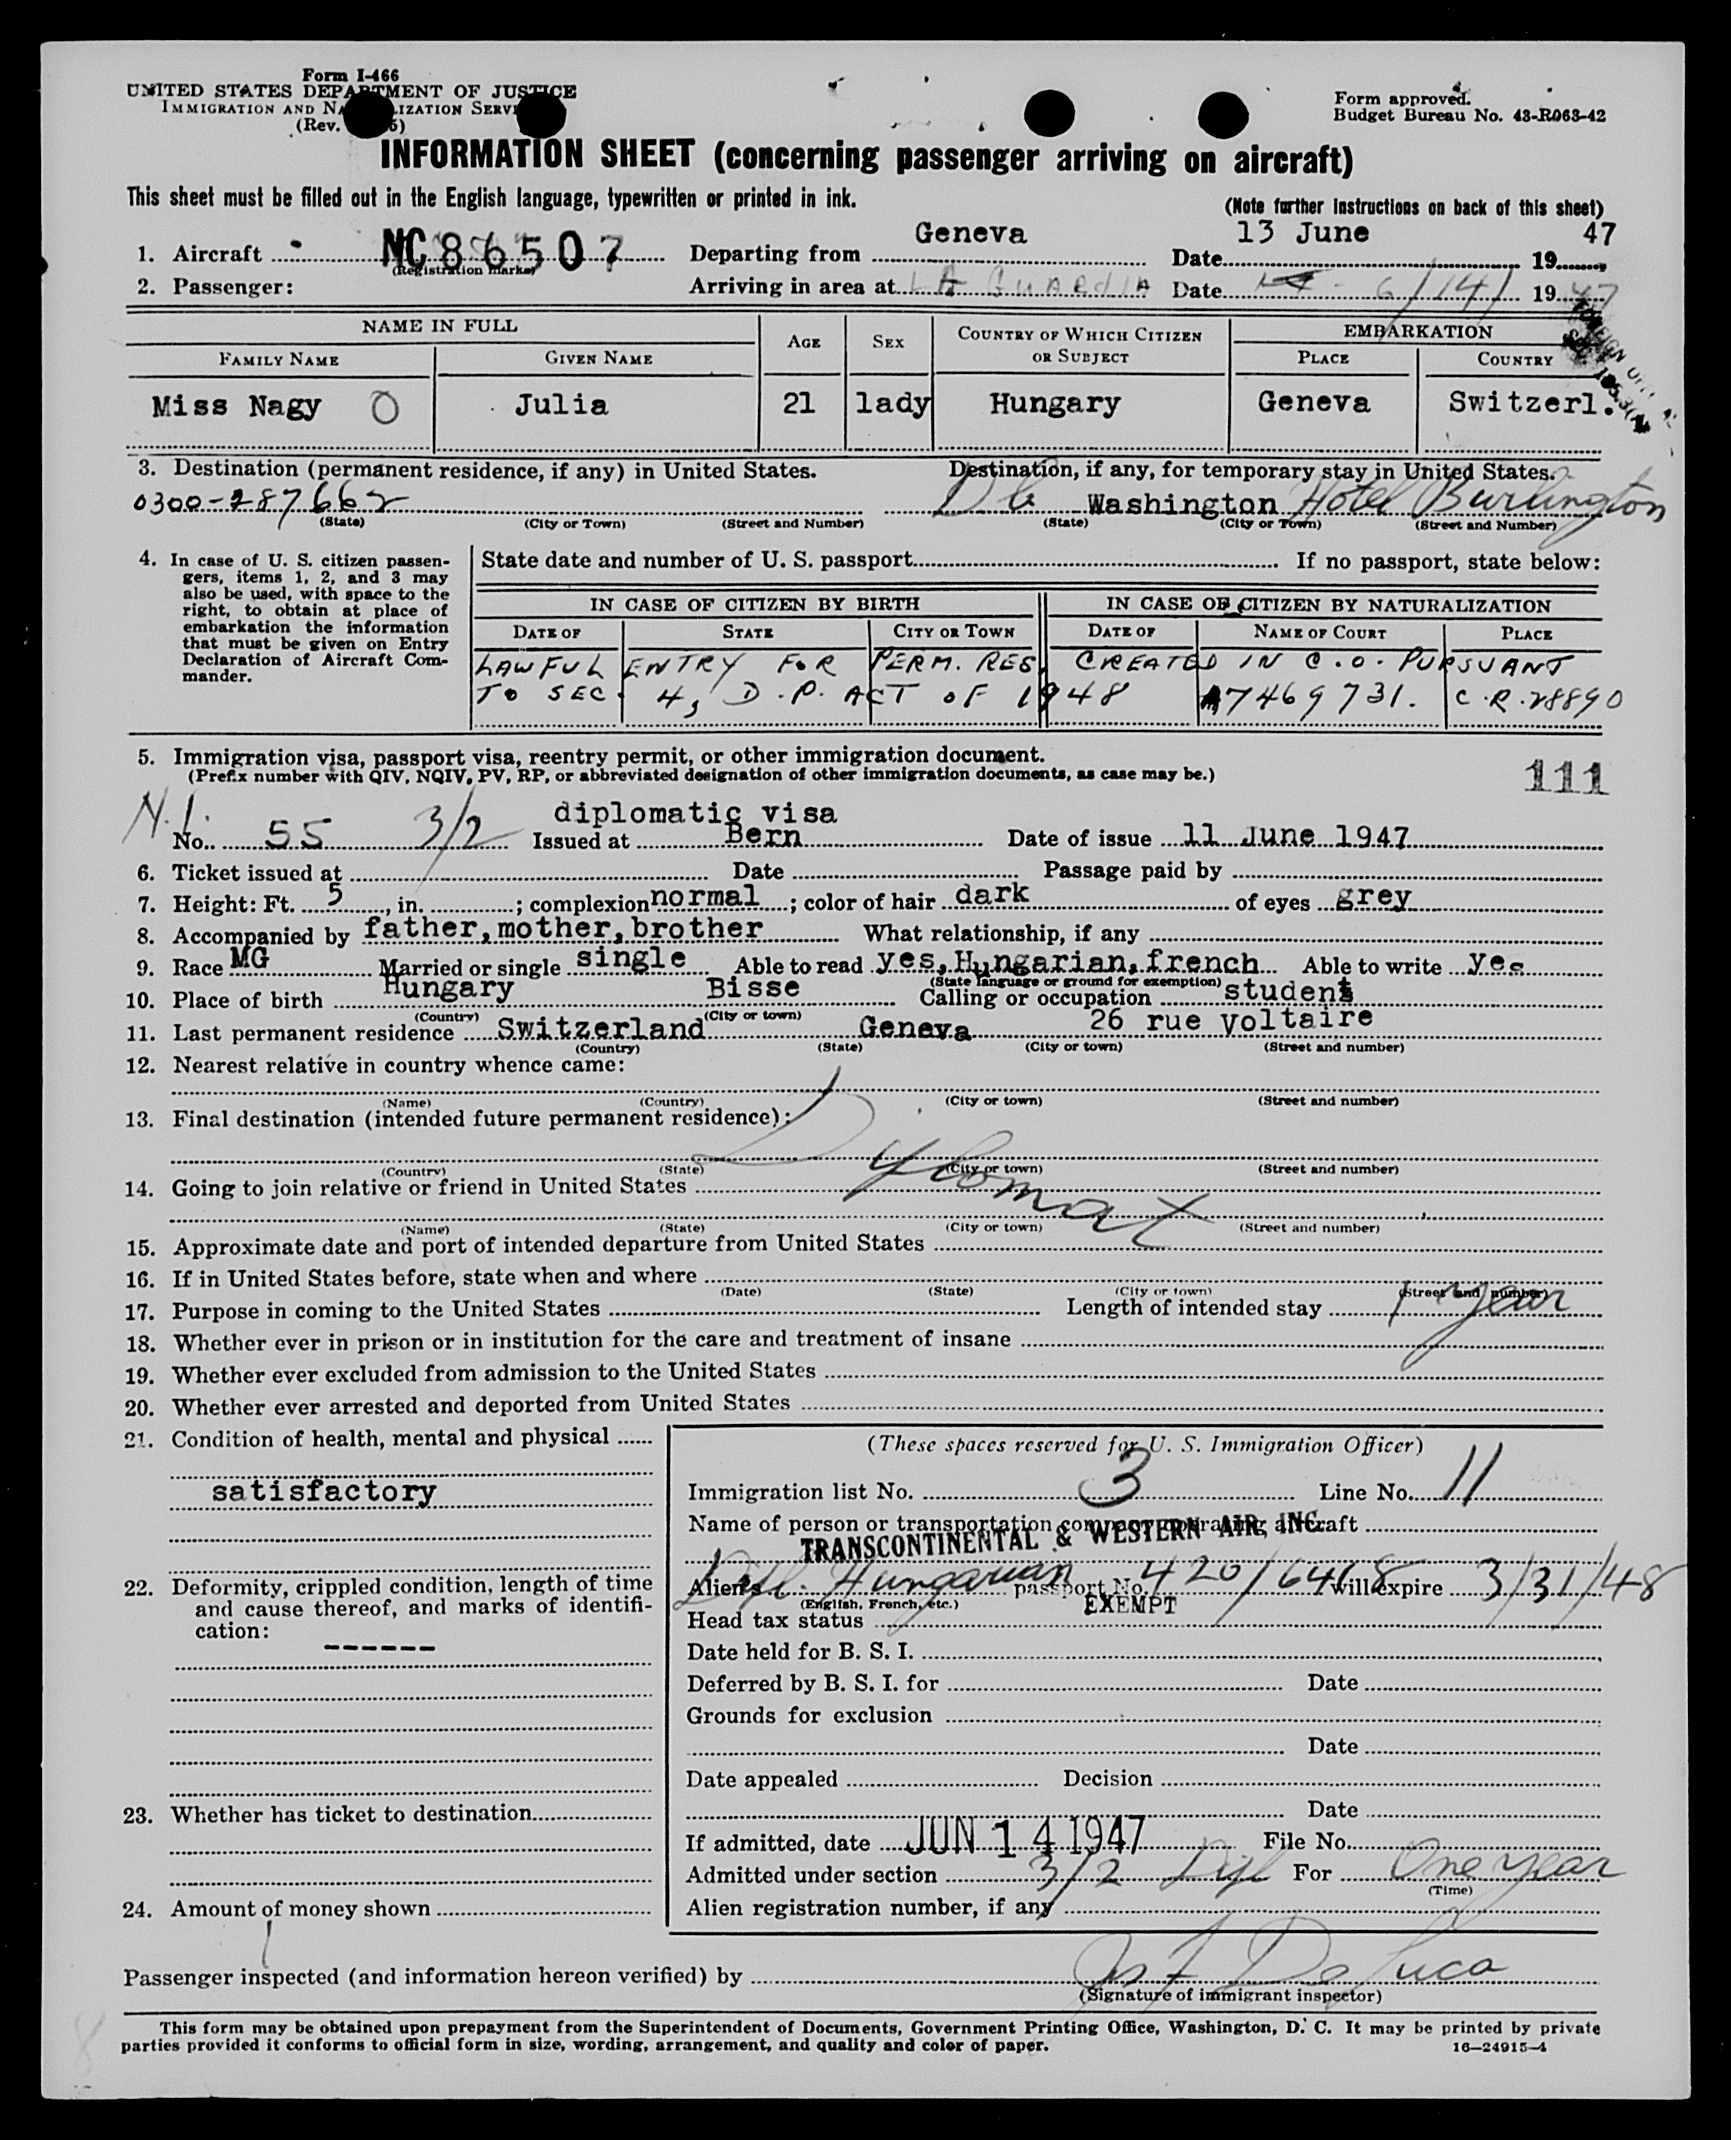 Form I-466
UNITED STATES DEPARTMENT OF JUSTICE
IMMIGRATION AND NATURALIZATION SERVICE
(Rev.
Form approved.
Budget Bureau No. 43-R063-42
INFORMATION SHEET (concerning passenger arriving on aircraft)
This sheet must be filled out in the English language, typewritten or printed in ink.
(Note further instructions on back of this sheet)
1. Aircraft NC 86507 Departing from Geneva Date 13 June 1947
(Registration marks)
2. Passenger: Arriving in area at LA GUARDIA Date 6/14/ 1947
NAME IN FULL AGE SEX COUNTRY OF WHICH CITIZEN OR SUBJECT EMBARKATION
FAMILY NAME GIVEN NAME PLACE COUNTRY
Miss Nagy O Julia 21 lady Hungary Geneva Switzerl.
3. Destination (permanent residence, if any) in United States. Destination, if any, for temporary stay in United States.
0300-287662 DC Washington Hotel Burlington
(State) (City or Town) (Street and Number) (State) (City or Town) (Street and Number)
4. In case of U. S. citizen passen-
gers, items 1, 2, and 3 may
also be used, with space to the
right, to obtain at place of
embarkation the information
that must be given on Entry
Declaration of Aircraft Com-
mander.
State date and number of U. S. passport If no passport, state below:
IN CASE OF CITIZEN BY BIRTH IN CASE OF CITIZEN BY NATURALIZATION
DATE OF STATE CITY OR TOWN DATE OF NAME OF COURT PLACE
LAWFUL ENTRY FOR PERM. RES. CREATED IN C.O. PURSUANT
TO SEC. 4, D.P. ACT OF 1948 A7469731. C.R. 28890
5. Immigration visa, passport visa, reentry permit, or other immigration document.
(Prefix number with QIV, NQIV, PV, RP, or abbreviated designation of other immigration documents, as case may be.)
111
N.I. diplomatic visa
No. 55 3/2 Issued at Bern Date of issue 11 June 1947
6. Ticket issued at Date Passage paid by
7. Height: Ft. 5, in. ; complexion normal ; color of hair dark of eyes grey
8. Accompanied by father, mother, brother What relationship, if any
9. Race MG Married or single single Able to read yes, Hungarian, french Able to write yes
(State language or ground for exemption)
10. Place of birth Hungary Bisse Calling or occupation student
(Country) (City or town)
11. Last permanent residence Switzerland Geneva 26 rue Voltaire
(Country) (State) (City or town) (Street and number)
12. Nearest relative in country whence came:
(Name) (Country) (City or town) (Street and number)
13. Final destination (intended future permanent residence):
Diplomat
(Country) (State) (City or town) (Street and number)
14. Going to join relative or friend in United States
(Name) (State) (City or town) (Street and number)
15. Approximate date and port of intended departure from United States
16. If in United States before, state when and where
(Date) (State) (City or town) (Street and number)
17. Purpose in coming to the United States Length of intended stay 1 year
18. Whether ever in prison or in institution for the care and treatment of insane
19. Whether ever excluded from admission to the United States
20. Whether ever arrested and deported from United States
21. Condition of health, mental and physical
satisfactory
22. Deformity, crippled condition, length of time
and cause thereof, and marks of identifi-
cation:
------
23. Whether has ticket to destination
24. Amount of money shown
(These spaces reserved for U. S. Immigration Officer)
Immigration list No. 3 Line No. 11
Name of person or transportation company operating aircraft
TRANSCONTINENTAL & WESTERN AIR, INC.
Alien's Dipl. Hungarian passport No. 420/6418 will expire 3/31/48
(English, French, etc.)
Head tax status EXEMPT
Date held for B. S. I.
Deferred by B. S. I. for Date
Grounds for exclusion
Date
Date appealed Decision
Date
If admitted, date JUN 14 1947 File No.
Admitted under section 3/2 Dipl For One year
(Time)
Alien registration number, if any
Passenger inspected (and information hereon verified) by Jos F De Luca
(Signature of immigrant inspector)
This form may be obtained upon prepayment from the Superintendent of Documents, Government Printing Office, Washington, D. C. It may be printed by private
parties provided it conforms to official form in size, wording, arrangement, and quality and color of paper.
16—24915-4